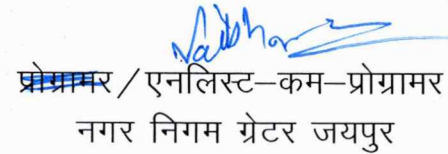 प्रोग्रामर / एनलिस्ट–कम–प्रोग्रामर
नगर निगम ग्रेटर जयपुर